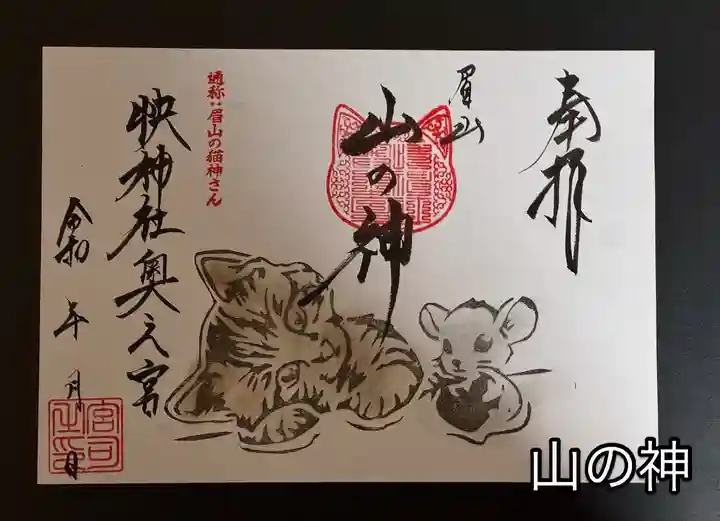 奉拝
眉山
山の神
通称:眉山の猫神さん
映神社奥之宮
令和 年 月 日
宮司之印
山の神